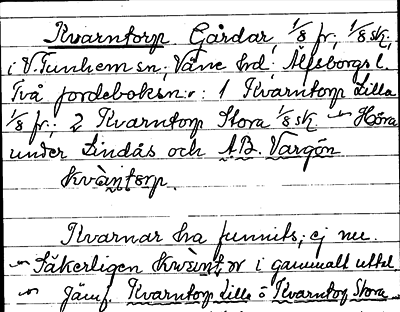 Kvarntorp. Gårdar, 1/8 fr., 1/8 sk.,
i V. Tunhem sn, Väne hd, Älfsborgs l.
Två jordeboksn:r: 1 Kvarntorp Lilla
1/8 fr.; 2 Kvarntorp Stora 1/8 sk. ~ Höra
under Lindås och A.B. Vargön
kvàntorp.
Kvarnar ha funnits; ej nu.
~ Säkerligen i gammalt uttal.
~ Jämf. Kvarntorp Lilla o Kvarntorp Stora